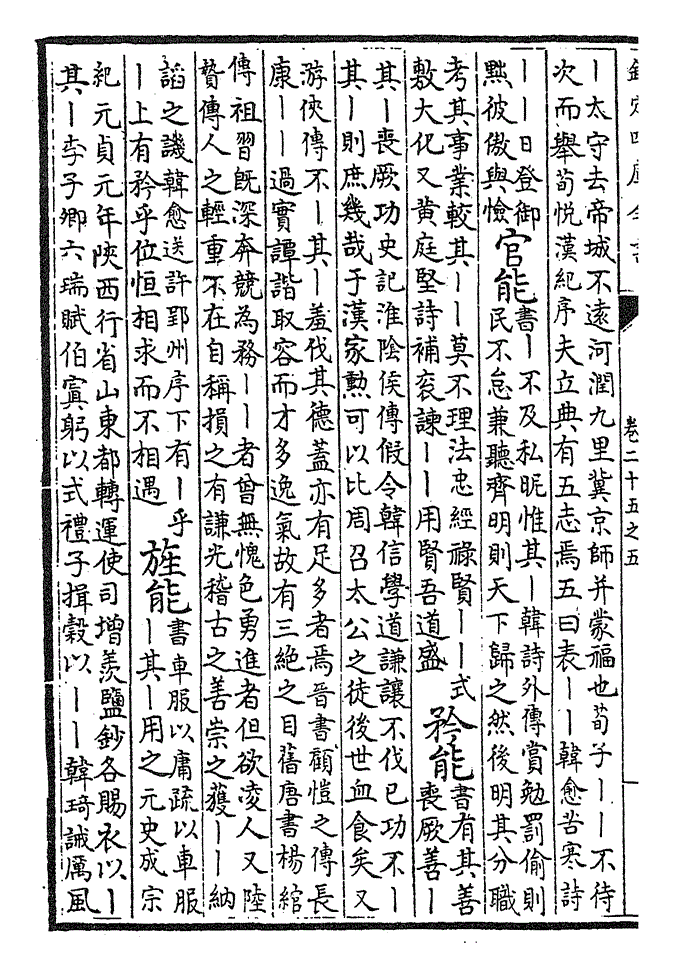 欽定四庫全書
卷二十五之五
｜太守去帝城不遠河潤九里冀京師并蒙福也荀子｜｜不待
次而舉荀悦漢紀序夫立典有五志焉五曰表｜｜韓愈苦寒詩
｜｜日登御
黙彼傲與憸
官能
書｜｜不及私昵惟其｜韓詩外傳賞勉罰偷則
民不怠兼聽齊明則天下歸之然後明其分職
考其事業較其｜｜莫不理法忠經祿賢｜｜式
敷大化又黄庭堅詩補衮諫｜｜用賢吾道盛
矜能
書有其善
喪厥善｜
其｜喪厥功史記淮陰侯傳假令韓信學道謙讓不伐已功不｜
其｜則庶幾哉于漢家勲可以比周召太公之徒後世血食矣又
游俠傳不｜其｜羞伐其德蓋亦有足多者焉晉書顧愷之傳長
康｜｜過實譚諧取容而才多逸氣故有三絶之目舊唐書楊綰
傳祖習既深奔競為務｜｜者曾無愧色勇進者但欲凌人又陸
贄傳人之輕重不在自稱損之有謙光稽古之善崇之獲｜｜納
謟之譏韓愈送許郢州序下有｜乎
｜上有矜乎位恒相求而不相遇
旌能
書車服以庸疏以車服
｜其｜用之元史成宗
紀元貞元年陝西行省山東都轉運使司增羨鹽鈔各賜衣以｜
其｜李子卿六瑞賦伯寘躬以式禮子揖穀以｜｜韓琦誡厲風